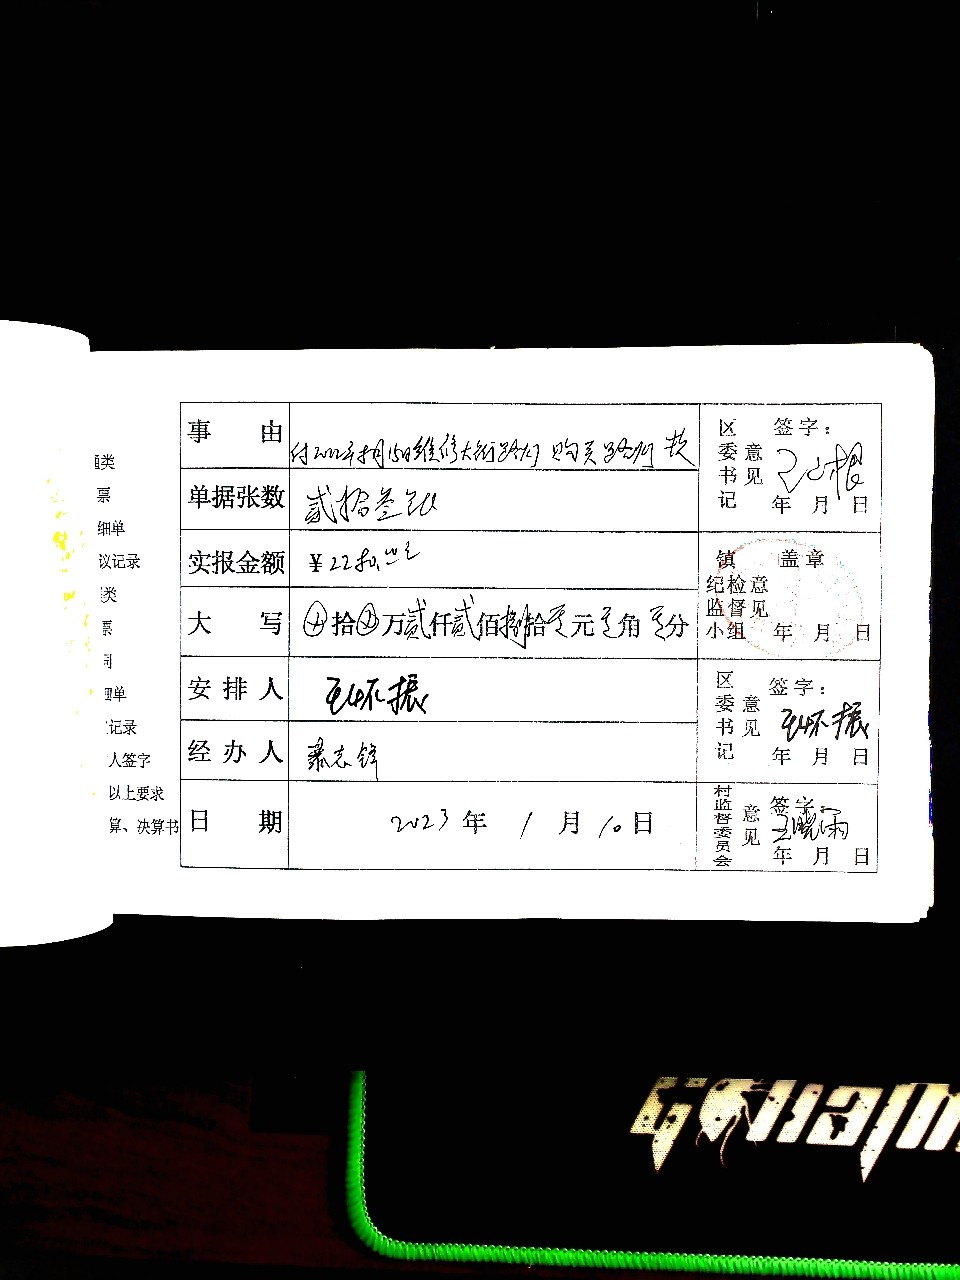 类
票
细单
议记录
类
票
单
记录
人签字
以上要求
算、决算书
事 由
付2022年 月15日维修大街路灯 购买路灯 款
单据张数
贰拾叁张
实报金额
¥2280.00元
大 写
拾 万贰仟贰佰捌拾零元零角零分
安 排 人
王怀振
经 办 人
志锋
日 期
2023年 1 月 10 日
区委书记 意见
签字：
年 月 日
镇纪检监督小组 意见
盖章
年 月 日
区委书记 意见
签字：
王怀振
年 月 日
村监督委员会 意见
签字：
王晓雨
年 月 日